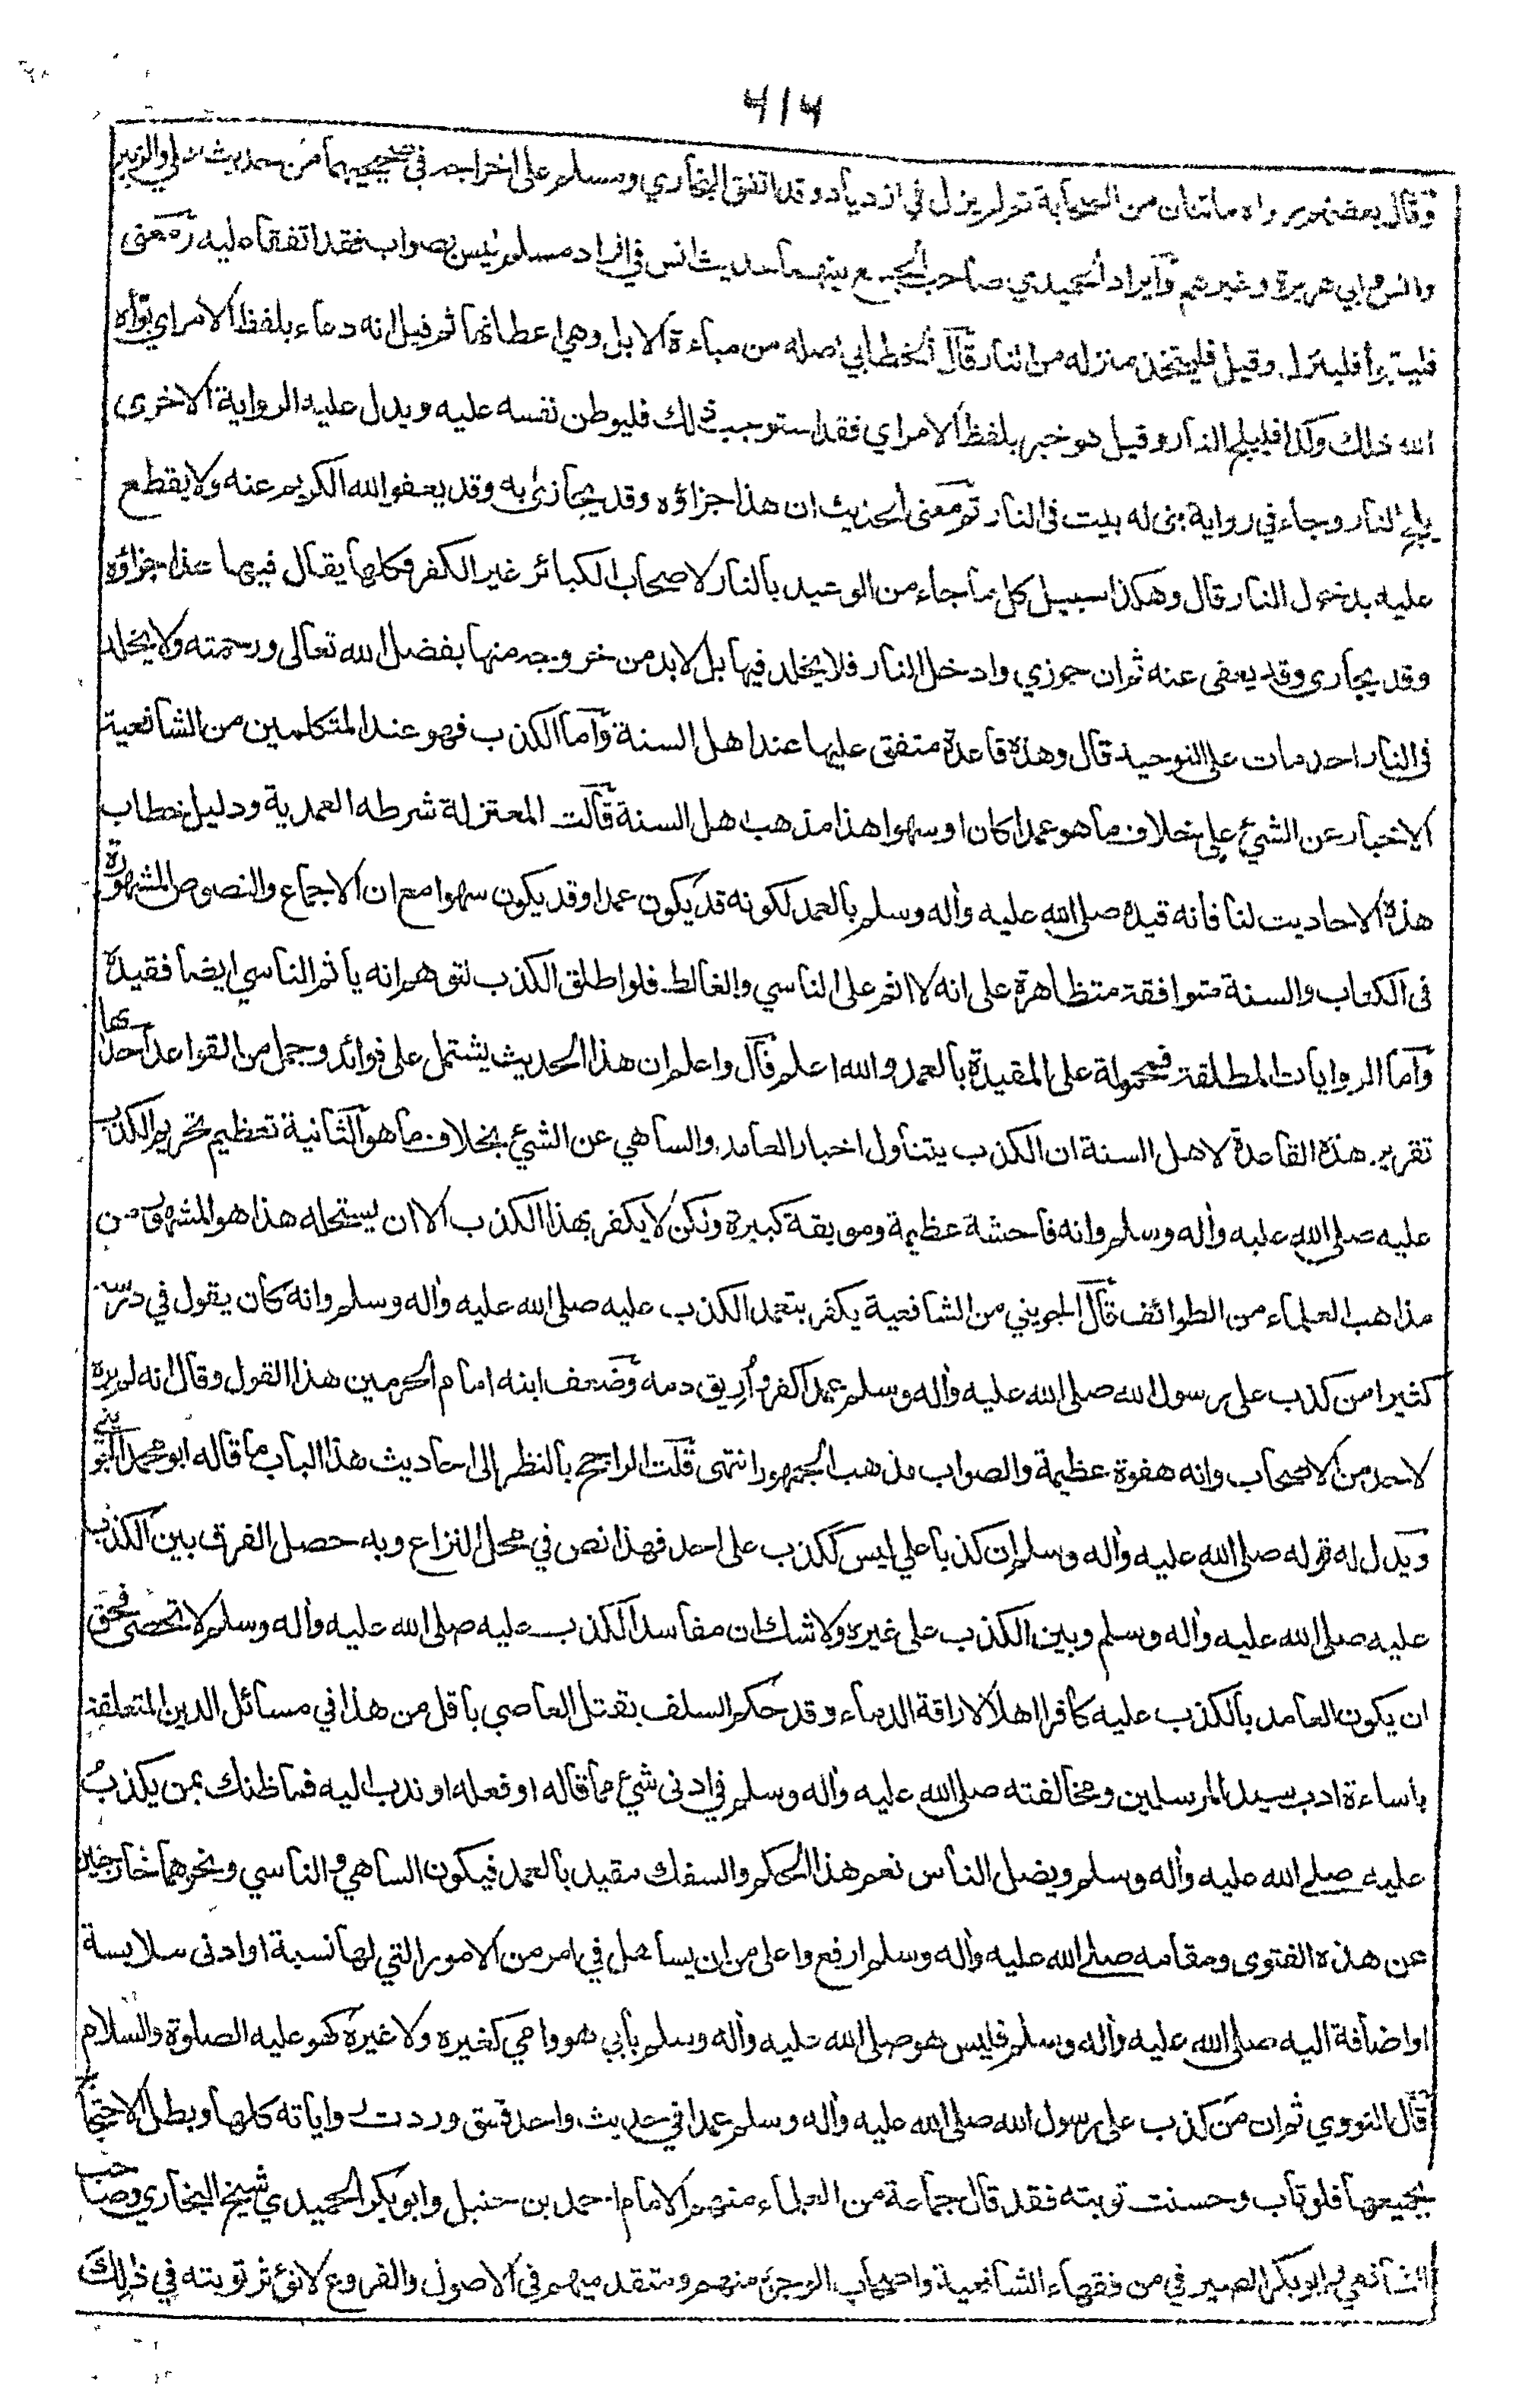 ۶۱۶
وقال بعضهم رواه مائتان من الصحابة ثم لم يزل في ازدياد وقد اتفق البخاري ومسلم على اخراجه في صحيحيهما من حديث علي والزبير
وانس وابي هريرة وغيرهم وايراد الحميدي صاحب الجمع بينهما حديث انس في افراد مسلم ليس بصواب فقد اتفقا عليه ومعنى
فليتبوأ فلينزل وقيل فليتخذ منزله من النار قال الخطابي اصله من مباءة الابل وهي اعطانها ثم قيل انه دعاء بلفظ الامر اي بوأه
الله ذلك وكذا فليلج النار وقيل هو خبر بلفظ الامر اي فقد استوجب ذلك فليوطن نفسه عليه ويدل عليه الرواية الاخرى
يلج النار وجاء في رواية بنى له بيت فى النار ثم معنى الحديث ان هذا جزاؤه وقد يجازى به وقد يعفو الله الكريم عنه ولا يقطع
عليه بدخول النار قال وهكذا سبيل كل ما جاء من الوعيد بالنار لاصحاب الكبائر غير الكفر فكلها يقال فيها هذا جزاؤه
وقد يجازى وقد يعفى عنه ثم ان جوزي وادخل النار فلا يخلد فيها بل لابد من خروجه منها بفضل الله تعالى ورحمته ولا يخلد
فى النار احد مات على التوحيد قال وهذه قاعدة متفق عليها عند اهل السنة واما الكذب فهو عند المتكلمين من الشافعية
الاخبار عن الشيء على خلاف ما هو عمدا كان او سهوا هذا مذهب اهل السنة قالت المعتزلة شرطه العمدية ودليل خطاب
هذه الاحاديث لنا فانه قيده صلى الله عليه وأله وسلم بالعمد لكونه قد يكون عمدا وقد يكون سهوا مع ان الاجماع والنصوص المشهورة
فى الكتاب والسنة متوافقة متظاهرة على انه لا اثم على الناسي والغالط فلو اطلق الكذب لتوهم انه ياثم الناسي ايضا فقيده
واما الروايات المطلقة فمحمولة على المقيدة بالعمد والله اعلم قال واعلم ان هذا الحديث يشتمل على فوائد وجمل من القواعد احداها
تقرير هذه القاعدة لاهل السنة ان الكذب يتناول اخبار العامد والساهي عن الشيء بخلاف ما هو الثانية تعظيم تحريم الكذب
عليه صلى الله عليه وأله وسلم وانه فاحشة عظيمة وموبقة كبيرة ولكن لا يكفر بهذا الكذب الا ان يستحله هذا هو المشهور من
مذاهب العلماء من الطوائف قال الجويني من الشافعية يكفر بتعمد الكذب عليه صلى الله عليه وأله وسلم وانه كان يقول في درسه
كثيرا من كذب على رسول الله صلى الله عليه وأله وسلم عمدا كفر وأريق دمه وضعف ابنه امام الحرمين هذا القول وقال انه لم يره
لاحد من الاصحاب وانه هفوة عظيمة والصواب مذهب الجمهور انتهى قلت الراجح بالنظر الى احاديث هذا الباب ما قاله ابو محمد الجويني
ويدل له قوله صلى الله عليه وأله وسلم ان كذبا علي ليس ككذب على احد فهذا نص في محل النزاع وبه حصل الفرق بين الكذب
عليه صلى الله عليه وأله وسلم وبين الكذب على غيره ولا شك ان مفاسد الكذب عليه صلى الله عليه وأله وسلم لا تحصى فحق
ان يكون العامد بالكذب عليه كافرا اهلا لاراقة الدماء وقد حكم السلف بقتل العاصي باقل من هذا في مسائل الدين المتعلقة
باساءة ادب سيد المرسلين ومخالفته صلى الله عليه وأله وسلم في ادنى شيء مما قاله او فعله او ندب اليه فما ظنك بمن يكذب
عليه صلى الله عليه وأله وسلم ويضل الناس نعم هذا الحكم والسفك مقيد بالعمد فيكون الساهي والناسي ونحوهما خارجين
عن هذه الفتوى ومقامه صلى الله عليه وأله وسلم ارفع واعلى من ان يساهل في امر من الامور التي لها نسبة او ادنى ملابسة
او اضافة اليه صلى الله عليه وأله وسلم فليس هو صلى الله عليه وأله وسلم بأبي هو وامي كغيره ولا غيره كهو عليه الصلوة والسلام
قال النووي ثم ان من كذب على رسول الله صلى الله عليه وأله وسلم عمدا في حديث واحد فسق وردت رواياته كلها وبطل الاحتجاج
بجميعها فلو تاب وحسنت توبته فقد قال جماعة من العلماء منهم الامام احمد بن حنبل وابو بكر الحميدي شيخ البخاري وصاحب
الشافعي وابو بكر الصيرفي من فقهاء الشافعية واصحاب الوجوه منهم ومتقدميهم في الاصول والفروع لا تؤثر توبته في ذلك